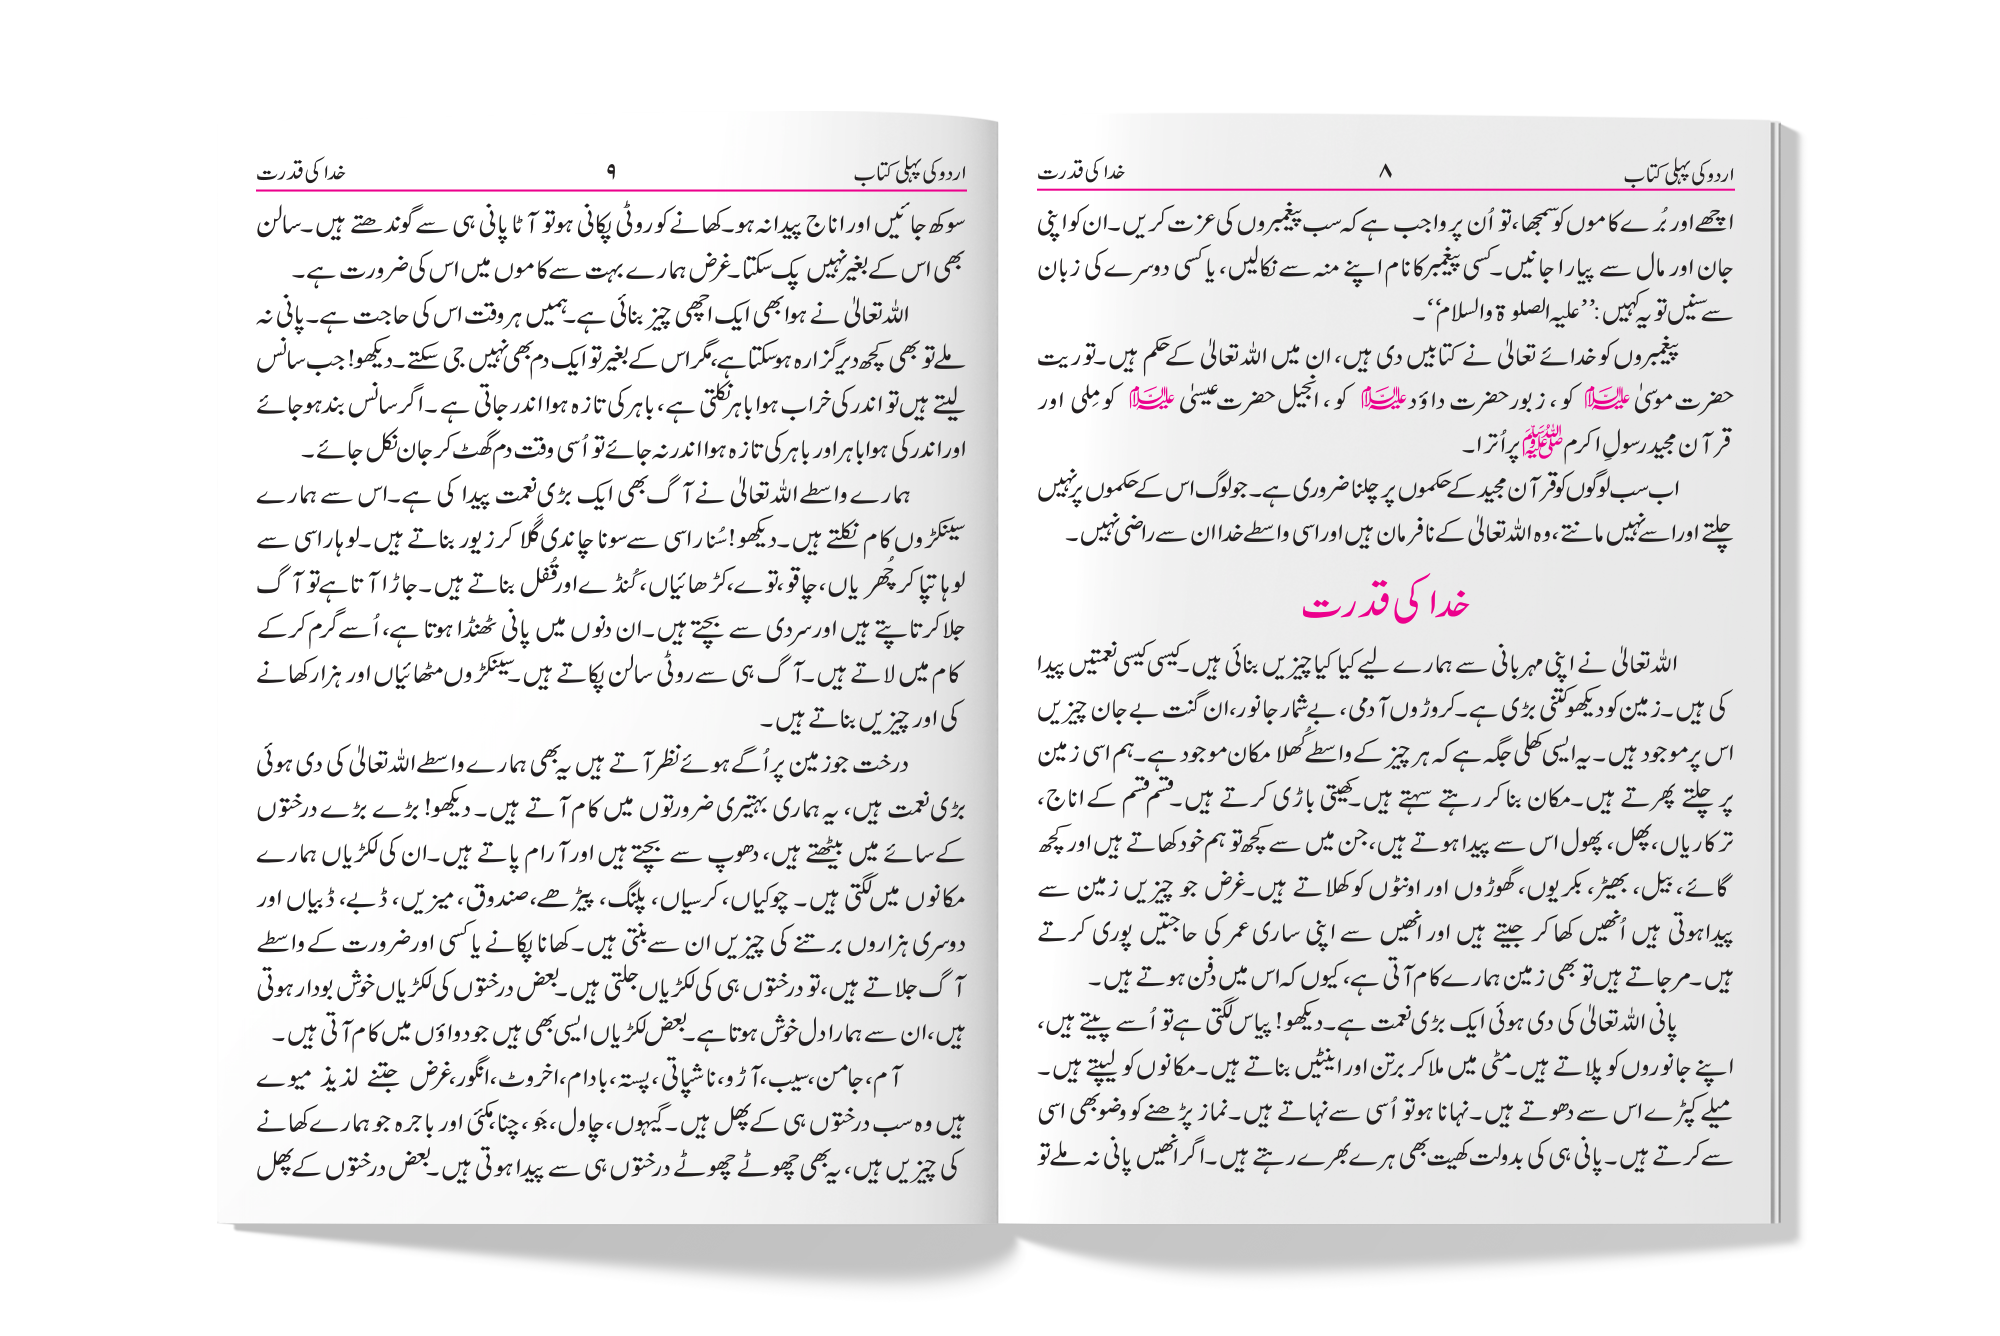 اردو کی پہلی کتاب ۸ خدا کی قدرت
اچھے اور بُرے کاموں کو سمجھا، تو اُن پر واجب ہے کہ سب پیغمبروں کی عزت کریں۔ ان کو اپنی
جان اور مال سے پیارا جانیں۔ کسی پیغمبر کا نام اپنے منہ سے نکالیں، یا کسی دوسرے کی زبان
سے سنیں تو یہ کہیں: ’’علیہ الصلوۃ والسلام‘‘۔
پیغمبروں کو خدائے تعالیٰ نے کتابیں دی ہیں، ان میں اللہ تعالیٰ کے حکم ہیں۔ توریت
حضرت موسیٰ علیہ السلام کو، زبور حضرت داؤد علیہ السلام کو، انجیل حضرت عیسیٰ علیہ السلام کو مِلی اور
قرآن مجید رسولِ اکرم ﷺ پر اُترا۔
اب سب لوگوں کو قرآن مجید کے حکموں پر چلنا ضروری ہے۔ جو لوگ اس کے حکموں پر نہیں
چلتے اور اسے نہیں مانتے، وہ اللہ تعالیٰ کے نافرمان ہیں اور اسی واسطے خدا ان سے راضی نہیں۔
خدا کی قدرت
اللہ تعالیٰ نے اپنی مہربانی سے ہمارے لیے کیا کیا چیزیں بنائی ہیں۔ کیسی کیسی نعمتیں پیدا
کی ہیں۔ زمین کو دیکھو کتنی بڑی ہے۔ کروڑوں آدمی، بے شمار جانور، ان گنت بے جان چیزیں
اس پر موجود ہیں۔ یہ ایسی کھلی جگہ ہے کہ ہر چیز کے واسطے کُھلا مکان موجود ہے۔ ہم اسی زمین
پر چلتے پھرتے ہیں۔ مکان بنا کر رہتے سہتے ہیں۔ کھیتی باڑی کرتے ہیں۔ قسم قسم کے اناج،
ترکاریاں، پھل، پھول اس سے پیدا ہوتے ہیں، جن میں سے کچھ تو ہم خود کھاتے ہیں اور کچھ
گائے، بیل، بھیڑ، بکریوں، گھوڑوں اور اونٹوں کو کھلاتے ہیں۔ غرض جو چیزیں زمین سے
پیدا ہوتی ہیں اُنھیں کھا کر جیتے ہیں اور انھیں سے اپنی ساری عمر کی حاجتیں پوری کرتے
ہیں۔ مر جاتے ہیں تو بھی زمین ہمارے کام آتی ہے، کیوں کہ اس میں دفن ہوتے ہیں۔
پانی اللہ تعالیٰ کی دی ہوئی ایک بڑی نعمت ہے۔ دیکھو! پیاس لگتی ہے تو اُسے پیتے ہیں،
اپنے جانوروں کو پلاتے ہیں۔ مٹی میں ملا کر برتن اور اینٹیں بناتے ہیں۔ مکانوں کو لیپتے ہیں۔
میلے کپڑے اس سے دھوتے ہیں۔ نہانا ہو تو اُسی سے نہاتے ہیں۔ نماز پڑھنے کو وضو بھی اسی
سے کرتے ہیں۔ پانی ہی کی بدولت کھیت بھی ہرے بھرے رہتے ہیں۔ اگر انھیں پانی نہ ملے تو
اردو کی پہلی کتاب ۹ خدا کی قدرت
سوکھ جائیں اور اناج پیدا نہ ہو۔ کھانے کو روٹی پکانی ہو تو آٹا پانی ہی سے گوندھتے ہیں۔ سالن
بھی اس کے بغیر نہیں پک سکتا۔ غرض ہمارے بہت سے کاموں میں اس کی ضرورت ہے۔
اللہ تعالیٰ نے ہوا بھی ایک اچھی چیز بنائی ہے۔ ہمیں ہر وقت اس کی حاجت ہے۔ پانی نہ
ملے تو بھی کچھ دیر گزارہ ہو سکتا ہے، مگر اس کے بغیر تو ایک دم بھی نہیں جی سکتے۔ دیکھو! جب سانس
لیتے ہیں تو اندر کی خراب ہوا باہر نکلتی ہے، باہر کی تازہ ہوا اندر جاتی ہے۔ اگر سانس بند ہو جائے
اور اندر کی ہوا باہر اور باہر کی تازہ ہوا اندر نہ جائے تو اُسی وقت دم گھٹ کر جان نکل جائے۔
ہمارے واسطے اللہ تعالیٰ نے آگ بھی ایک بڑی نعمت پیدا کی ہے۔ اس سے ہمارے
سینکڑوں کام نکلتے ہیں۔ دیکھو! سُنار اسی سے سونا چاندی گَلا کر زیور بناتے ہیں۔ لوہار اسی سے
لوہا تپا کر چُھریاں، چاقو، توے، کڑھائیاں، کُنڈے اور قُفل بناتے ہیں۔ جاڑا آتا ہے تو آگ
جلا کر تاپتے ہیں اور سردی سے بچتے ہیں۔ ان دنوں میں پانی ٹھنڈا ہوتا ہے، اُسے گرم کر کے
کام میں لاتے ہیں۔ آگ ہی سے روٹی سالن پکاتے ہیں۔ سینکڑوں مٹھائیاں اور ہزار کھانے
کی اور چیزیں بناتے ہیں۔
درخت جو زمین پر اُگے ہوئے نظر آتے ہیں یہ بھی ہمارے واسطے اللہ تعالیٰ کی دی ہوئی
بڑی نعمت ہیں، یہ ہماری بہتیری ضرورتوں میں کام آتے ہیں۔ دیکھو! بڑے بڑے درختوں
کے سائے میں بیٹھتے ہیں، دھوپ سے بچتے ہیں اور آرام پاتے ہیں۔ ان کی لکڑیاں ہمارے
مکانوں میں لگتی ہیں۔ چوکیاں، کرسیاں، پلنگ، پیڑھے، صندوق، میزیں، ڈبے، ڈبیاں اور
دوسری ہزاروں برتنے کی چیزیں ان سے بنتی ہیں۔ کھانا پکانے یا کسی اور ضرورت کے واسطے
آگ جلاتے ہیں، تو درختوں ہی کی لکڑیاں جلتی ہیں۔ بعض درختوں کی لکڑیاں خوش بودار ہوتی
ہیں، ان سے ہمارا دل خوش ہوتا ہے۔ بعض لکڑیاں ایسی بھی ہیں جو دواؤں میں کام آتی ہیں۔
آم، جامن، سیب، آڑو، ناشپاتی، پستہ، بادام، اخروٹ، انگور، غرض جتنے لذیذ میوے
ہیں وہ سب درختوں ہی کے پھل ہیں۔ گیہوں، چاول، جَو، چنا، مکئی اور باجرہ جو ہمارے کھانے
کی چیزیں ہیں، یہ بھی چھوٹے چھوٹے درختوں ہی سے پیدا ہوتی ہیں۔ بعض درختوں کے پھل